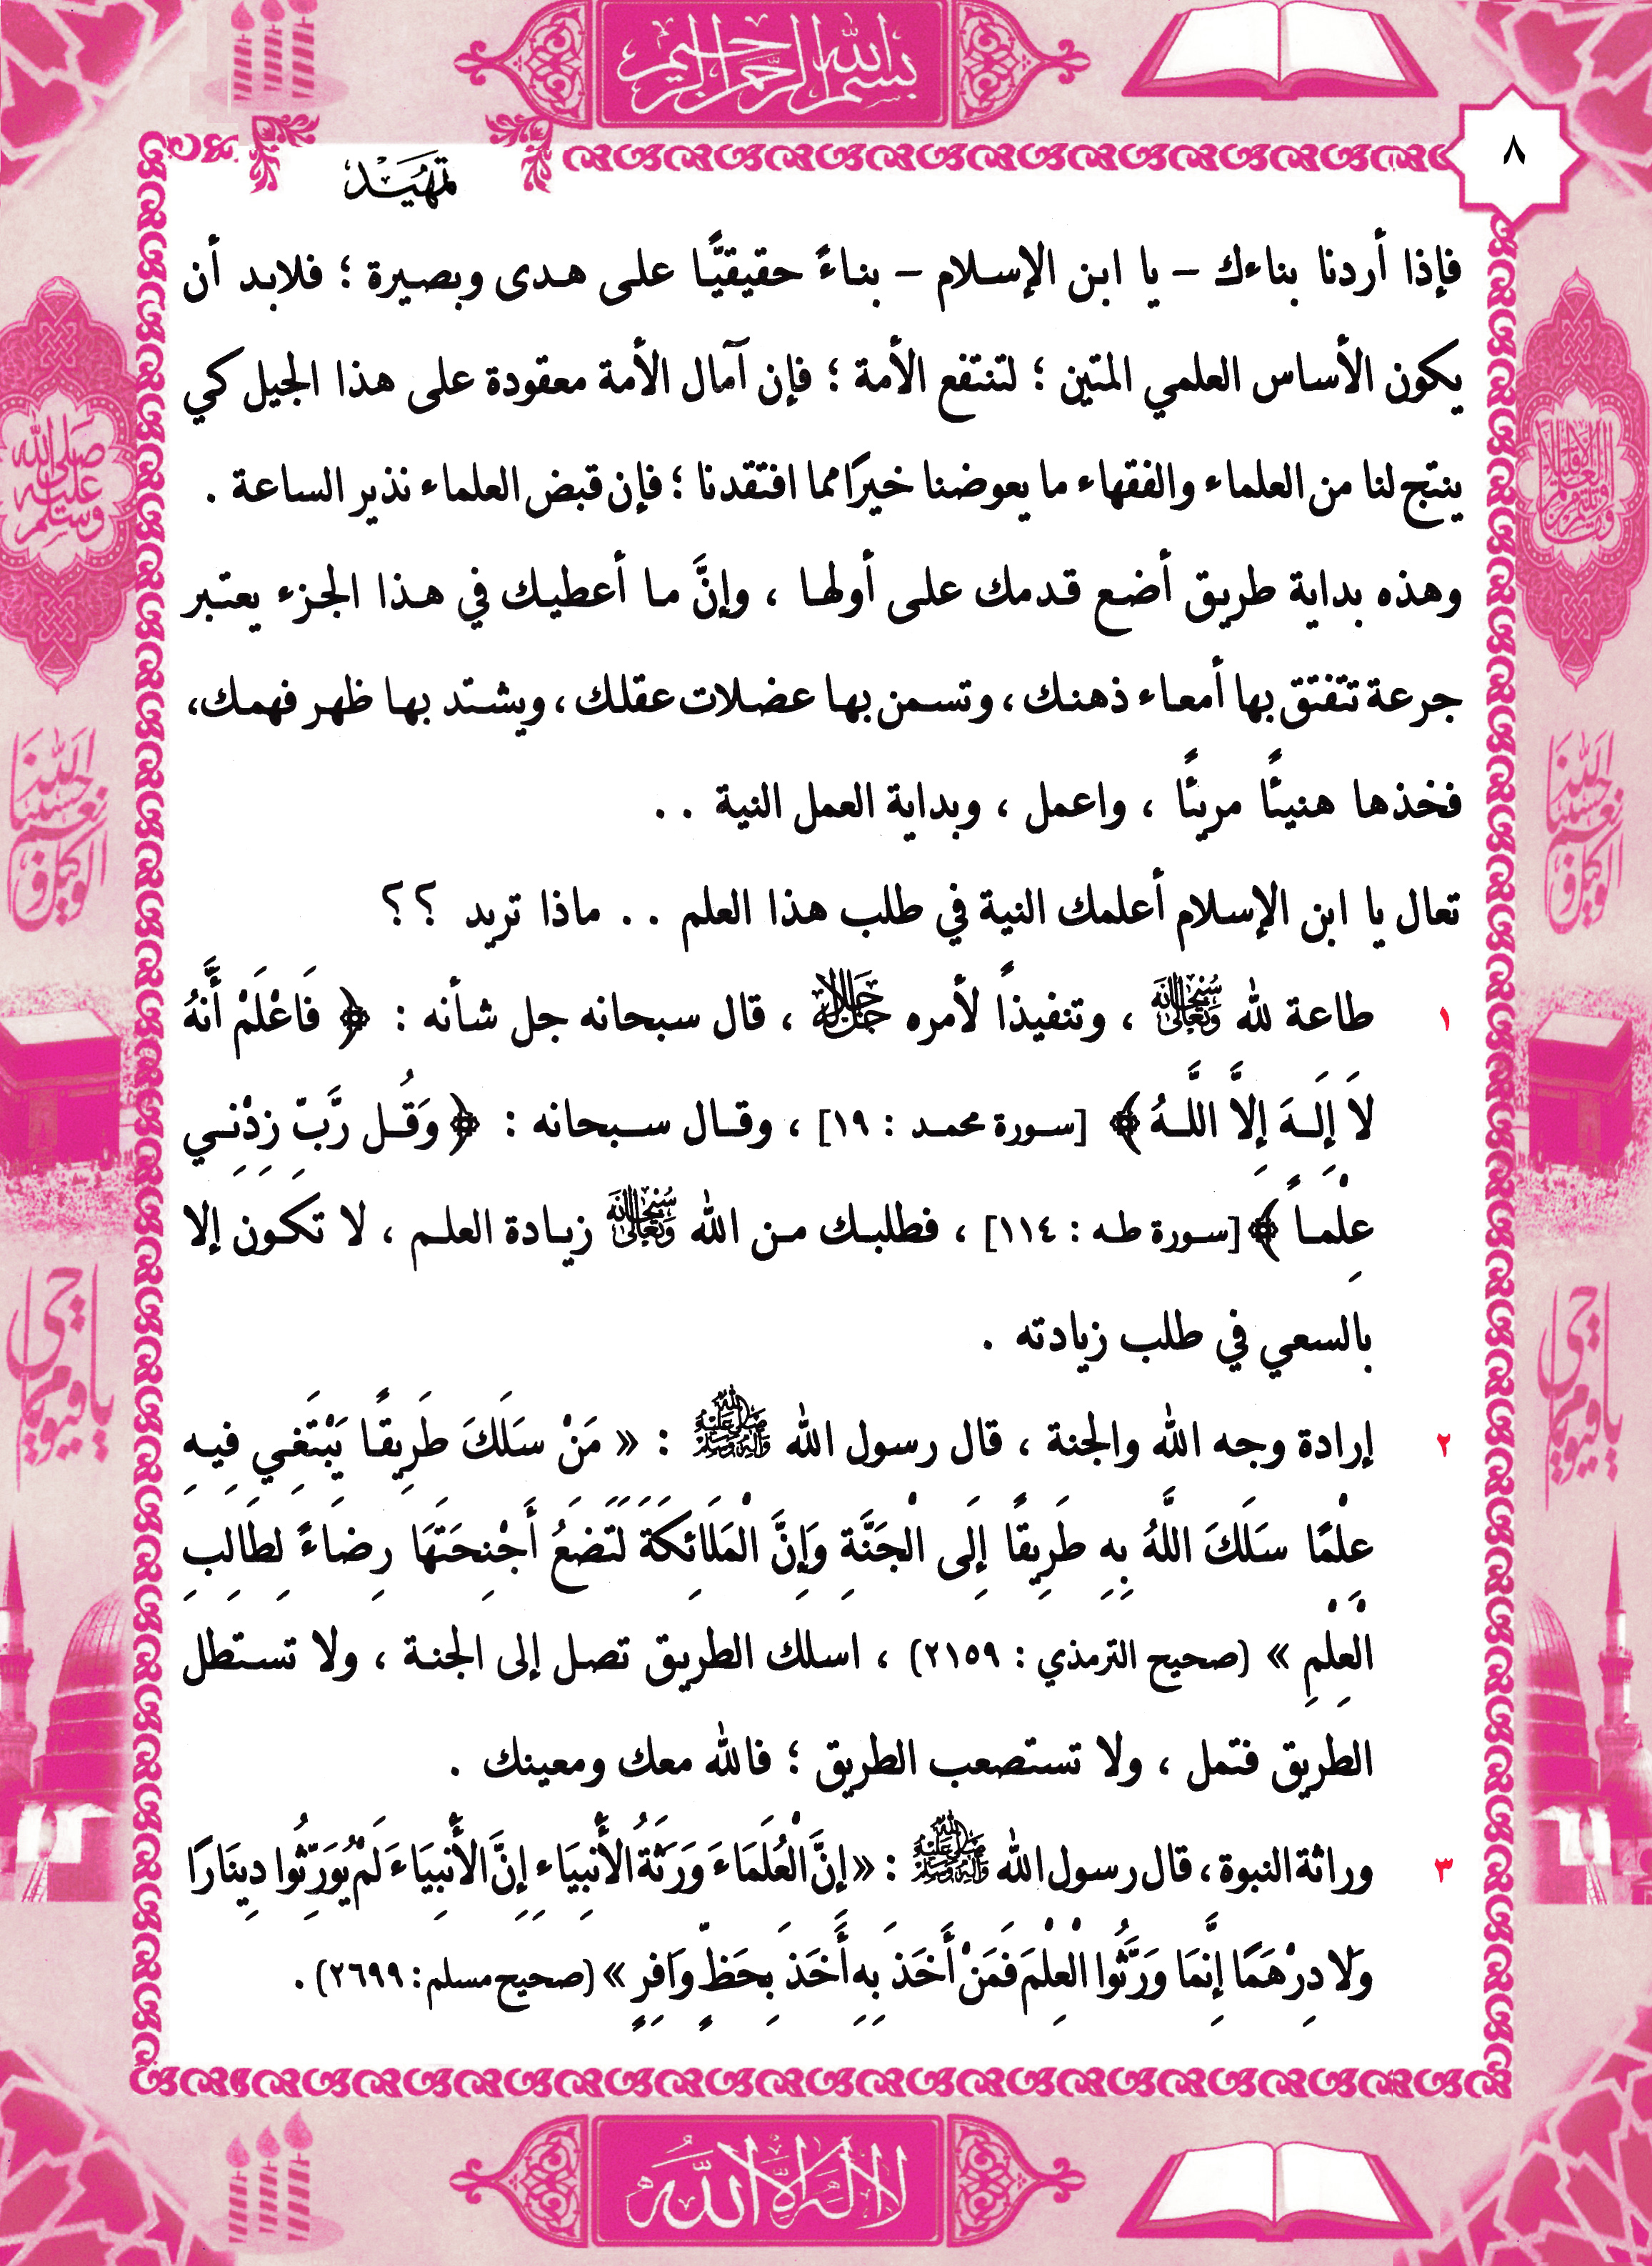 بسم الله الرحمن الرحيم
٨
تمهيد
فإذا أردنا بناءك – يا ابن الإسلام – بناءً حقيقيًّا على هدى وبصيرة ؛ فلابد أن
يكون الأساس العلمي المتين ؛ لتنتفع الأمة ؛ فإن آمال الأمة معقودة على هذا الجيل كي
ينتج لنا من العلماء والفقهاء ما يعوضنا خيرًا مما افتقدنا ؛ فإن قبض العلماء نذير الساعة .
وهذه بداية طريق أضع قدمك على أولها ، وإنَّ ما أعطيك في هذا الجزء يعتبر
جرعة تتفتق بها أمعاء ذهنك ، وتسمن بها عضلات عقلك ، ويشتد بها ظهر فهمك،
فخذها هنيئًا مريئًا ، واعمل ، وبداية العمل النية . .
تعال يا ابن الإسلام أعلمك النية في طلب هذا العلم . . ماذا تريد ؟؟
١ طاعة لله سبحانه وتعالى ، وتنفيذاً لأمره جل جلاله ، قال سبحانه جل شأنه : ﴿ فَاعْلَمْ أَنَّهُ
لاَ إِلَـهَ إِلاَّ اللَّـهُ ﴾ [سورة محمد : ١٩] ، وقال سبحانه : ﴿ وَقُل رَّبِّ زِدْنِي
عِلْمـاً ﴾ [سورة طه : ١١٤] ، فطلبك من الله سبحانه وتعالى زيادة العلم ، لا تكون إلا
بالسعي في طلب زيادته .
٢ إرادة وجه الله والجنة ، قال رسول الله صلى الله عليه وآله وسلم : « مَنْ سَلَكَ طَرِيقًا يَبْتَغِي فِيهِ
عِلْمًا سَلَكَ اللَّهُ بِهِ طَرِيقًا إِلَى الْجَنَّةِ وَإِنَّ الْمَلَائِكَةَ لَتَضَعُ أَجْنِحَتَهَا رِضَاءً لِطَالِبِ
الْعِلْمِ » (صحيح الترمذي : ٢١٥٩) ، اسلك الطريق تصل إلى الجنة ، ولا تستطل
الطريق فتمل ، ولا تستصعب الطريق ؛ فالله معك ومعينك .
٣ وراثة النبوة ، قال رسول الله صلى الله عليه وآله وسلم : « إِنَّ الْعُلَمَاءَ وَرَثَةُ الأَنْبِيَاءِ إِنَّ الأَنْبِيَاءَ لَمْ يُوَرِّثُوا دِينَارًا
وَلَا دِرْهَمًا إِنَّمَا وَرَّثُوا الْعِلْمَ فَمَنْ أَخَذَ بِهِ أَخَذَ بِحَظٍّ وَافِرٍ » (صحيح مسلم : ٢٦٩٩) .
صلى الله عليه وسلم
حسبنا الله ونعم الوكيل
حسبنا الله ونعم الوكيل
يا حي يا قيوم
يا حي يا قيوم
لا إله إلا الله